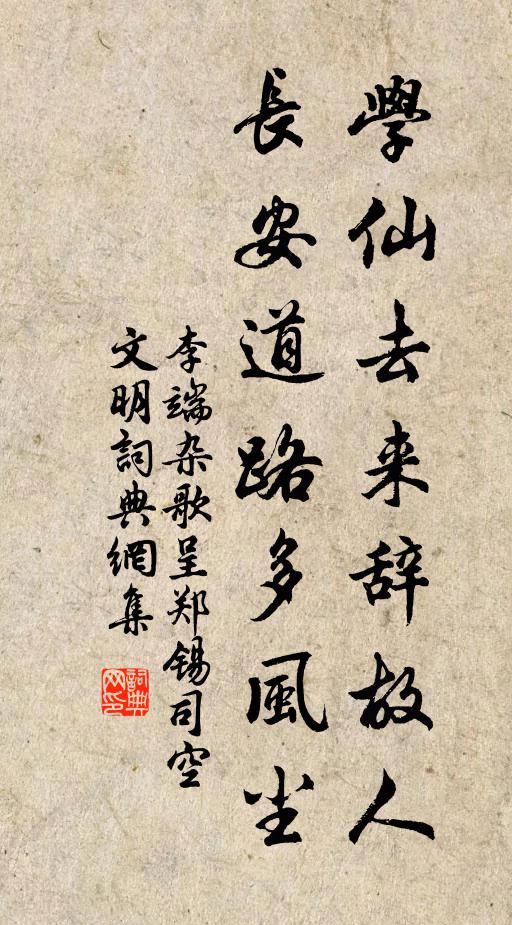 學仙去来辞故人
長安道路多風尘
李端杂歌呈郑锡司空
文明詞典網集
詞典
网印